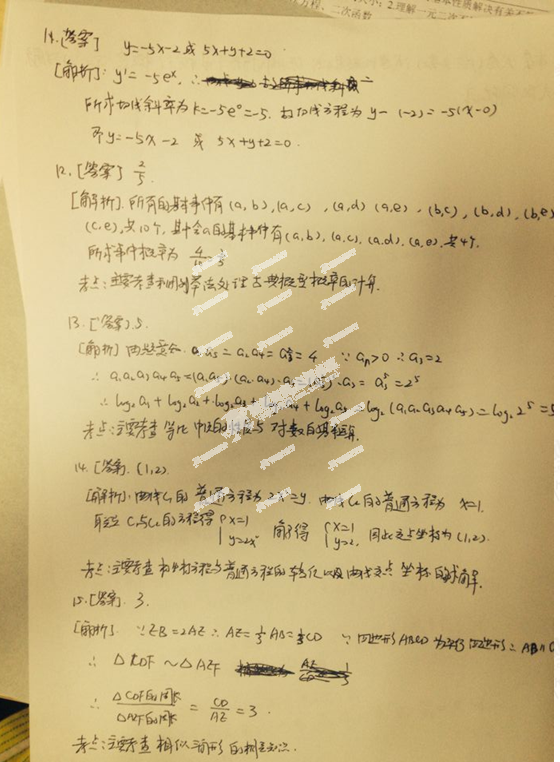 质解决有关不
2.理解一元二次不
方程、二次函数
[答案] y=-5x-2 或 5x+y+2=0.
[解析]: y'=-5eˣ, ∴
所求切线斜率为 k=-5e⁰=-5, 故切线方程为 y-(-2)=-5(x-0)
即 y=-5x-2 或 5x+y+2=0.
12. [答案] 2/5.
[解析]. 所有的基本事件有 (a,b), (a,c), (a,d) (a,e), (b,c), (b,d), (b,e)
(c,e), 共10个, 其中含a的基本事件有 (a,b), (a,c), (a,d), (a,e), 共4个,
所求事件概率为 4/10
考点: 主要考查利用列举法处理古典概型概率的计算.
13. [答案] 5.
[解析] 由题意知 a₁a₅=a₂a₄=a₃²=4 ∵aₙ>0 ∴a₃=2
∴ a₁a₂a₃a₄a₅=(a₁a₅)·(a₂a₄)·a₃= ·a₃=a₃⁵=2⁵
∴ log₂a₁+log₂a₂+log₂a₃+log₂a₄+log₂a₅=log₂(a₁a₂a₃a₄a₅)=log₂2⁵=5
考点: 主要考查等比中项的性质与对数的基本运算.
14. [答案]. (1,2).
[解析]: 曲线C₁的普通方程为 2x²=y, 曲线C₂的普通方程为 x=1,
联立C₁与C₂的方程得 {x=1 y=2x² 解得 {x=1 y=2, 因此交点坐标为(1,2).
考点: 主要考查参数方程与普通方程的转化以及曲线交点坐标的求解.
15. [答案]. 3.
[解析]. ∵EB=2AE ∴AE=1/3AB=1/3CD ∵四边形ABCD为平行四边形 ∴AB∥C
∴ △CDF∽△AEF
∴ △CDF的周长/△AEF的周长 = CD/AE =3.
考点: 主要考查相似三角形的相关知识.